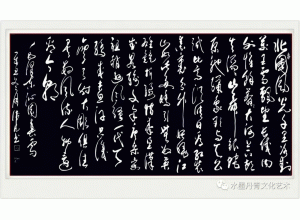 北國風光千里冰封
萬里雪飄望長城內
外惟餘莽莽大河上下
頓失滔滔山舞銀蛇
原馳蠟象欲與天公
試比高須晴日看紅
裝素裹分外妖嬈江
山如此多嬌引無數英
雄競折腰惜秦皇漢
武略輸文采唐宗宋
祖稍遜風騷一代天
驕成吉思汗只識
彎弓射大雕俱往
矣數風流人物還
看今朝
毛澤東沁園春雪
水墨丹青文化艺术